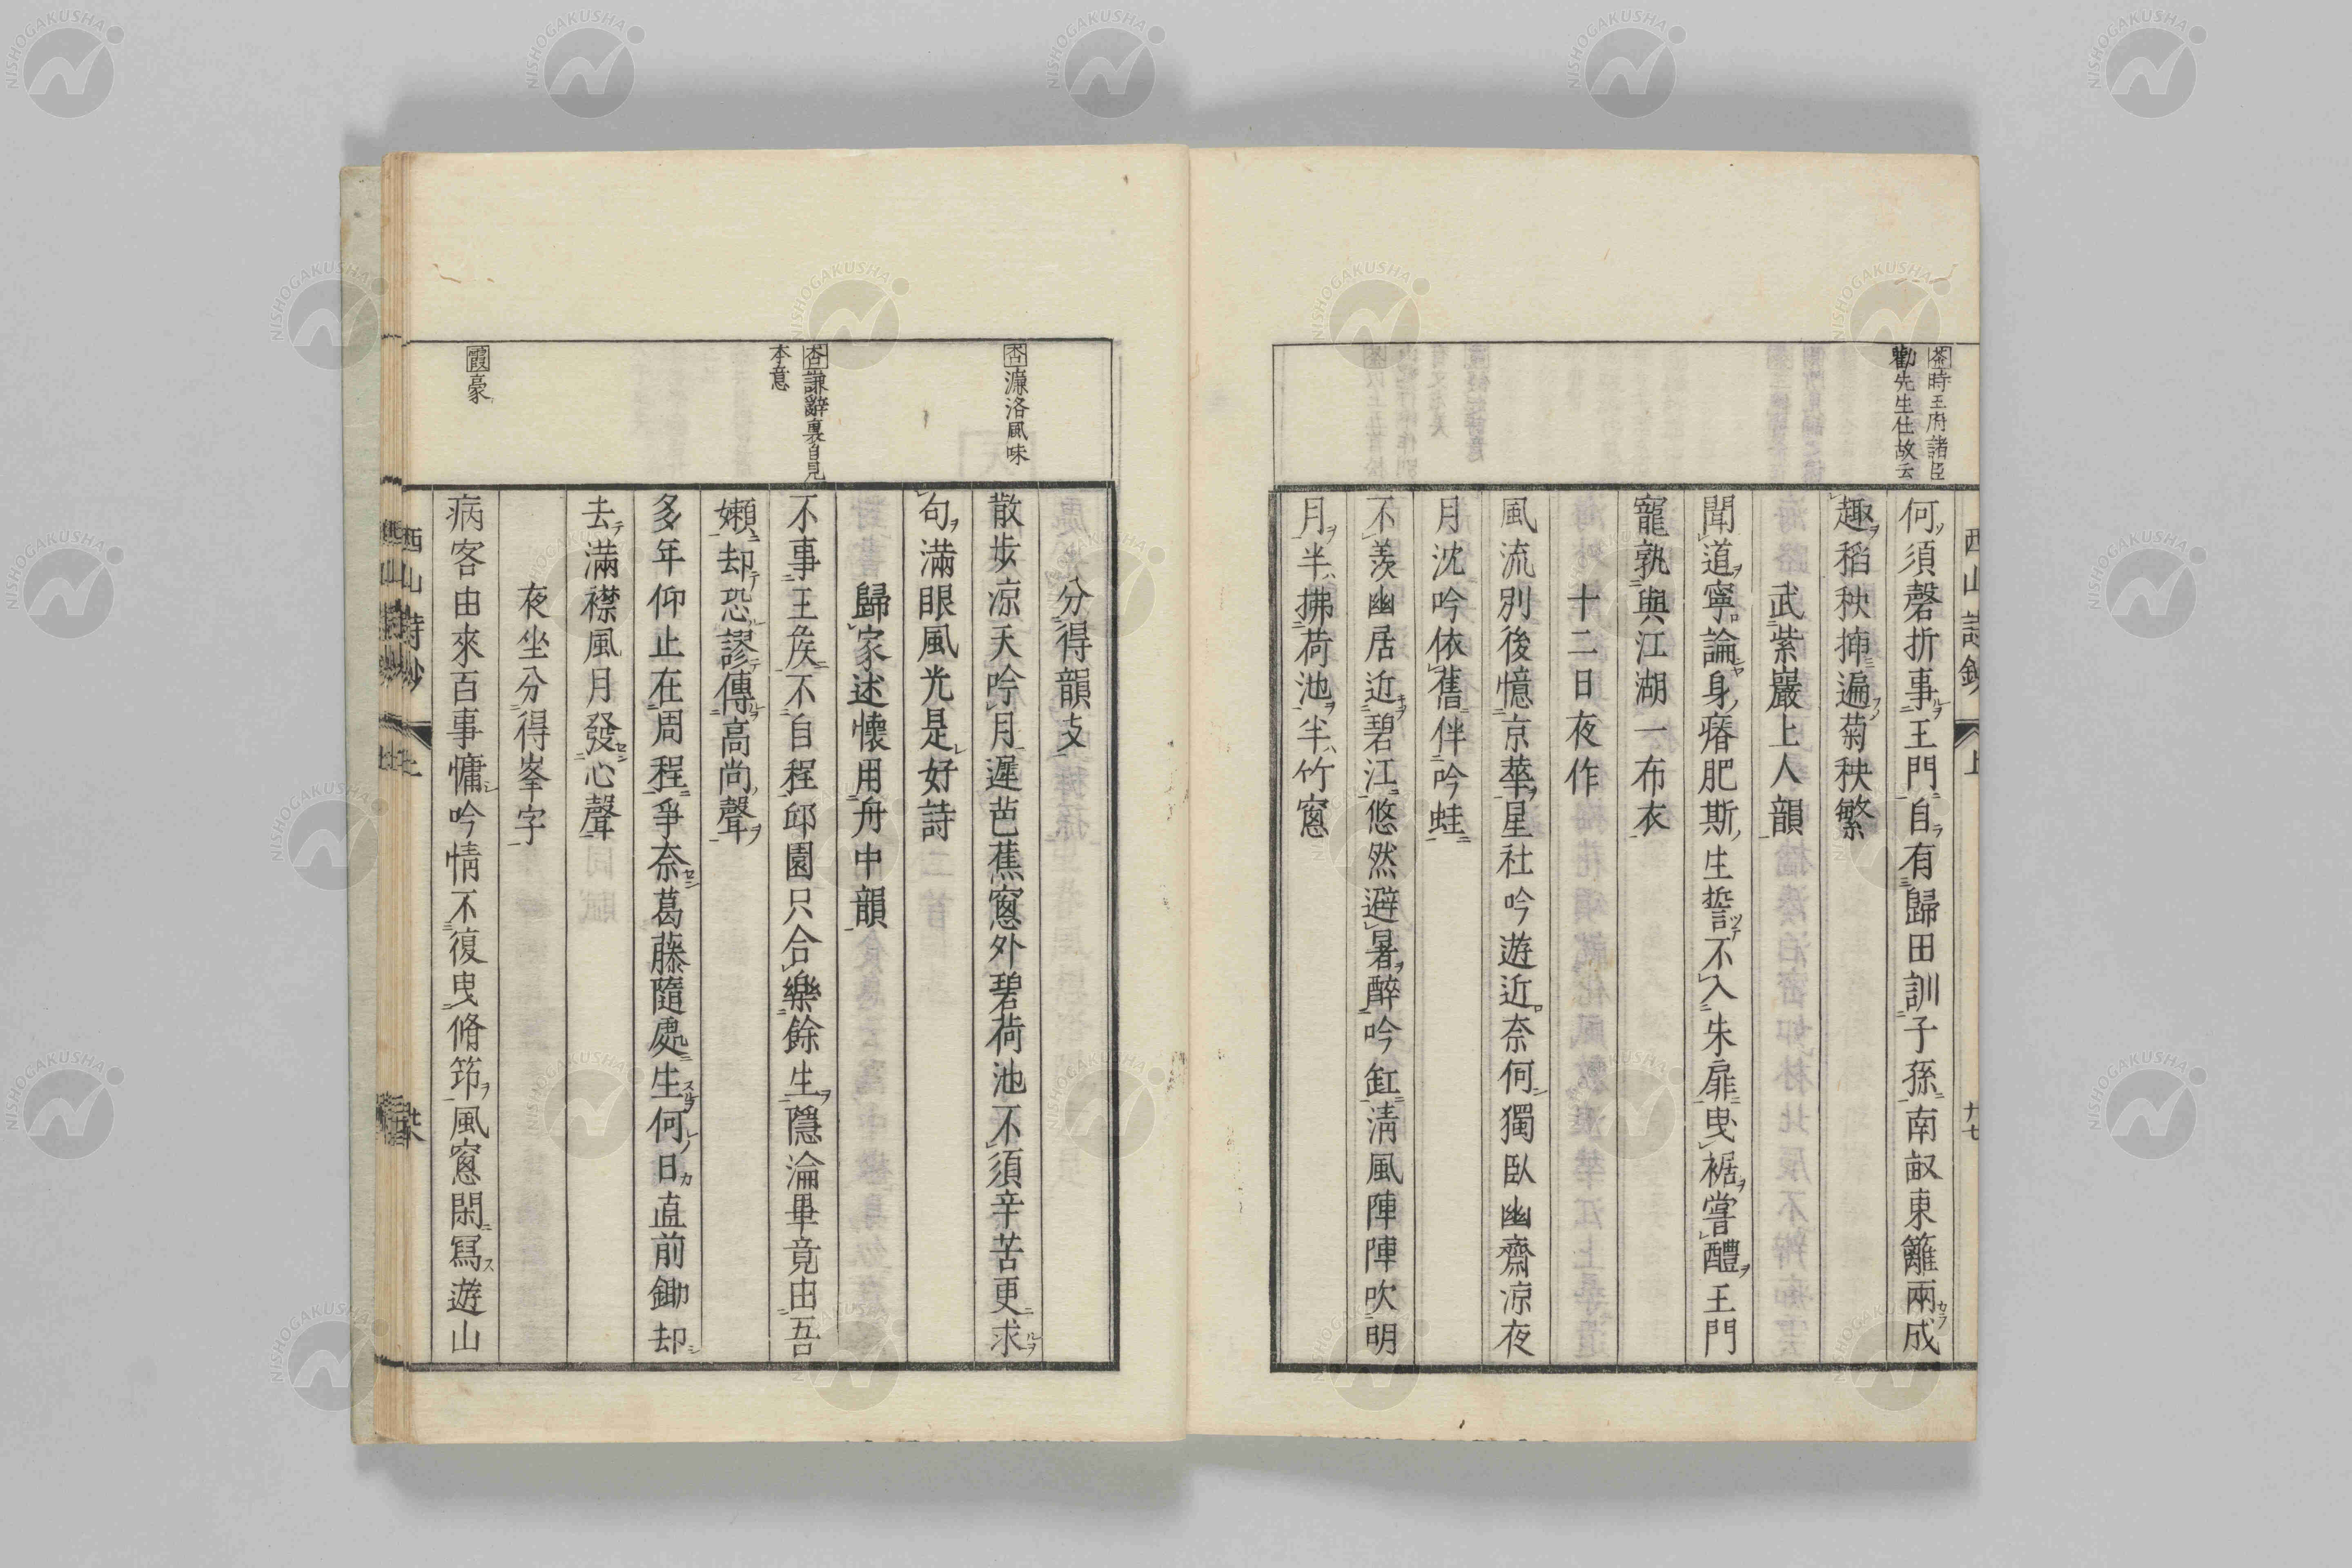 茶時王府諸臣
勸先生仕故云
何須磬折事王門自有歸田訓子孫南畝東籬兩成
趣稻秧揷遍菊秧繁
武紫巖上人韻
聞道寧論身瘠肥斯生誓不入朱扉曳裾嘗醴王門
寵孰與江湖一布衣
十二日夜作
風流別後憶京華星社吟遊近奈何獨臥幽齋凉夜
月沈吟依舊伴吟蛙
不羨幽居近碧江悠然避暑醉吟缸淸風陣陣吹明
月半拂荷池半竹窻
西山詩鈔 上
杏濂洛風味
杏謙辭裏自見
本意
霞豪
分得韻支
散步凉天吟月遲芭蕉窻外碧荷池不須辛苦更求
句滿眼風光是好詩
歸家述懷用舟中韻
不事王矦不自程邱園只合樂餘生隱淪畢竟由吾
嬾却恐謬傳高尙聲
多年仰止在周程爭奈葛藤隨處生何日直前鋤却
去滿襟風月發心聲
夜坐分得峯字
病客由來百事慵吟情不復曳脩笻風窻閑寫遊山
西山詩鈔